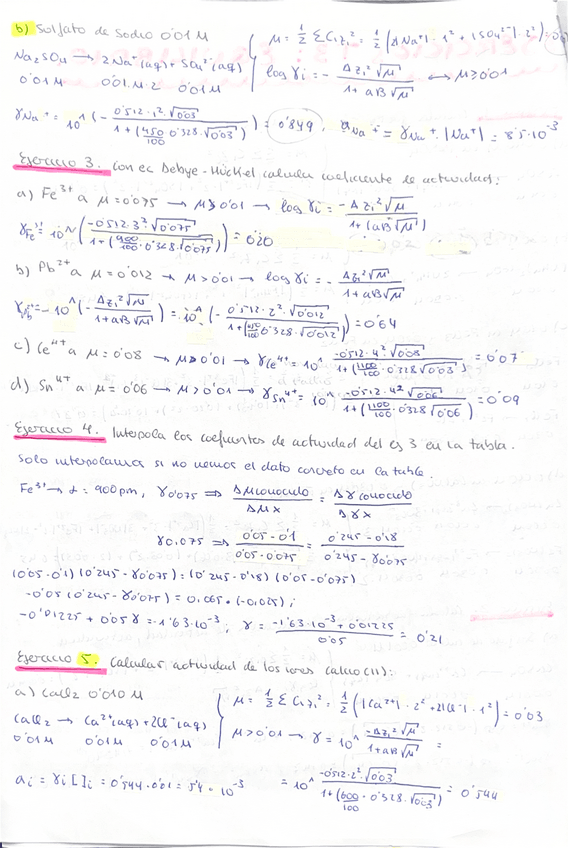 b) Sulfato de Sodio 0'01 M
μ = 1/2 Σ Ci zi² = 1/2 (2|Na⁺| · 1² + |SO₄²⁻| · 2²) =
Na₂SO₄ → 2Na⁺(aq) + SO₄²⁻(aq)
0'01 M 0'01 M · 2 0'01 M
log γi = - A zi² √μ / 1 + aB √μ ↔ μ > 0'01
γNa⁺ = 10^(- 0'512 · 1² · √0'03 / 1 + (450/100 · 0'328 · √0'03)) = 0'849, aNa⁺ = γNa⁺ · |Na⁺| = 8'5 · 10⁻³
Ejercicio 3. Con ec Debye-Hückel calcula coeficiente de actividad:
a) Fe³⁺ a μ = 0'075 → μ > 0'01 → log γi = - A zi² √μ / 1 + (aB √μ)
γFe³⁺ = 10^(-0'512 · 3² · √0'075 / 1 + (900/100 · 0'328 · √0'075)) = 0'20
b) Pb²⁺ a μ = 0'012 → μ > 0'01 → log γi = - A zi² √μ / 1 + aB √μ
γPb²⁺ = 10^(- A zi² √μ / 1 + aB √μ) = 10^(- 0'512 · 2² · √0'012 / 1 + (450/100 · 0'328 · √0'012)) = 0'64
c) Ce⁴⁺ a μ = 0'08 → μ > 0'01 → γCe⁴⁺ = 10^ -0'512 · 4² · √0'08 / 1 + (1100/100 · 0'328 √0'03) = 0'07
d) Sn⁴⁺ a μ = 0'06 → μ > 0'01 → γSn⁴⁺ = 10^ -0'512 · 4² √0'06 / 1 + (1100/100 · 0'328 √0'06) = 0'09
Ejercicio 4. Interpola los coefientes de actividad del ej 3 en la tabla.
Solo interpolamos si no vemos el dato correcto en la tabla.
Fe³⁺ → d = 900 pm, γ0'075 ⇒ Δμ conocido / Δμ x = Δγ conocido / Δγ x
γ0,075 ⇒ 0'05 - 0'1 / 0'05 - 0'075 = 0'245 - 0'18 / 0'245 - γ0'075
(0'05 - 0'1) (0'245 - γ0'075) = (0'245 - 0'18) (0'05 - 0'075)
-0'05 (0'245 - γ0'075) = 0,065 · (-0,025) ;
-0'01225 + 0'05 γ = -1'63 · 10⁻³ ; γ = -1'63 · 10⁻³ + 0'01225 / 0'05 = 0'21
Ejercicio 5. Calcular actividad de los iones calcio (II):
a) CaCl₂ 0'010 M
μ = 1/2 Σ Ci zi² = 1/2 (|Ca²⁺| · 2² + 2|Cl⁻| · 1²) = 0'03
CaCl₂ → Ca²⁺(aq) + 2Cl⁻(aq)
0'01 M 0'01 M 0'01 M
μ > 0'01 → γ = 10^ -A zi² √μ / 1 + aB √μ =
ai = γi [ ]i = 0'544 · 0'01 = 5'4 · 10⁻³
= 10^ -0'512 · 2² · √0'03 / 1 + (600/100 · 0'328 · √0'03) = 0'544